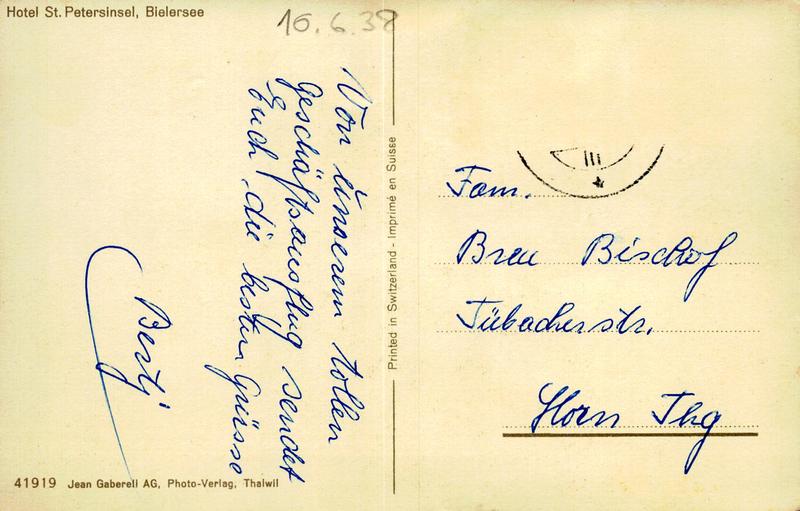 Hotel St. Petersinsel, Bielersee
16.6.38
Von unserem tollen
Geschäftsausflug sendet
Euch die besten Grüsse
Bertj
Printed in Switzerland - Imprimé en Suisse
III
Fam.
Breu Bischof
Tübacherstr.
Horn Thg
41919 Jean Gaberell AG, Photo-Verlag, Thalwil